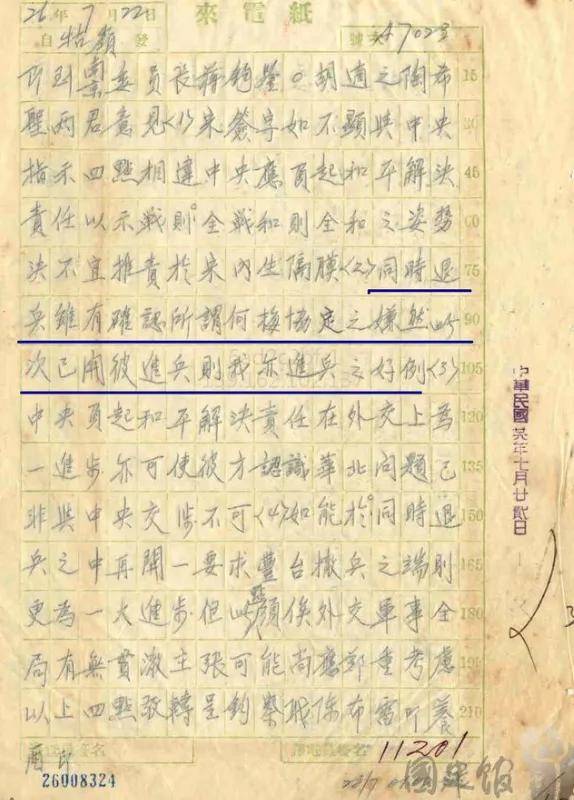 來電紙
26年7月22日
自牯嶺發 號次47023
即到南京委員長蔣鈞鑒。胡適之陶希
聖兩君意見(1)宋簽字如不顯與中央
指示四點相違中央應負起和平解決
責任以示戰則全戰和則全和之姿勢
決不宜推責於宋內生隔膜(2)同時退
兵雖有確認所謂何梅協定之嫌然此
次已開彼進兵則我亦進兵之好例(3)
中央負起和平解決責任在外交上為
一進步亦可使彼方認識華北問題已
非與中央交涉不可(4)如能於同時退
兵之中再開一要求豐台撤兵之端則
更為一大進步但此點須俟外交軍事全
局有無貫澈主張可能尚應鄭重考慮
以上四點敬轉呈鈞察職陳布雷叩養
酉印
15
30
45
60
75
90
105
120
135
150
165
180
195
210
11201
26008324
中華民國 年七月廿貳日